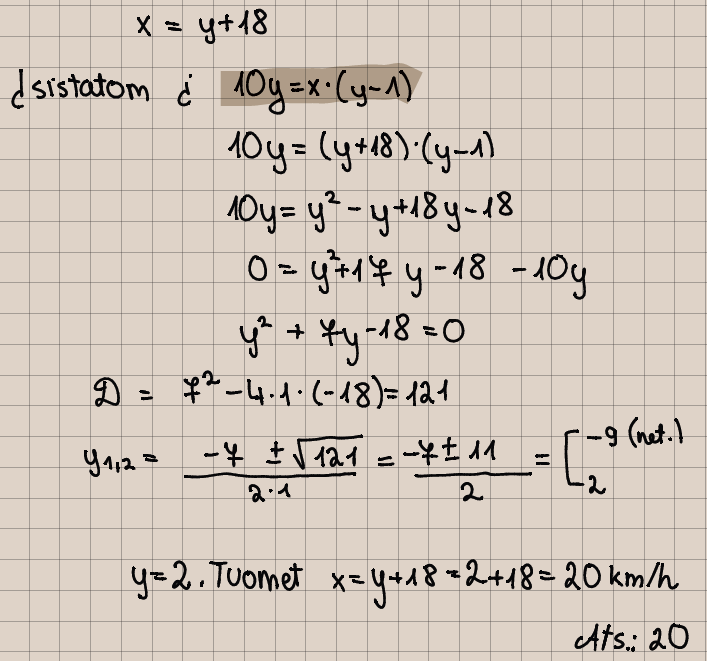 x = y+18
Įsistatom į 10y=x·(y-1)
10y=(y+18)·(y-1)
10y=y²-y+18y-18
0=y²+17y-18-10y
y²+7y-18=0
D = 7²-4·1·(-18)=121
y1,2 = (-7 ± √121)/(2·1) = (-7±11)/2 = [-9 (net.)
2
y=2. Tuomet x=y+18=2+18=20 km/h
Ats.: 20